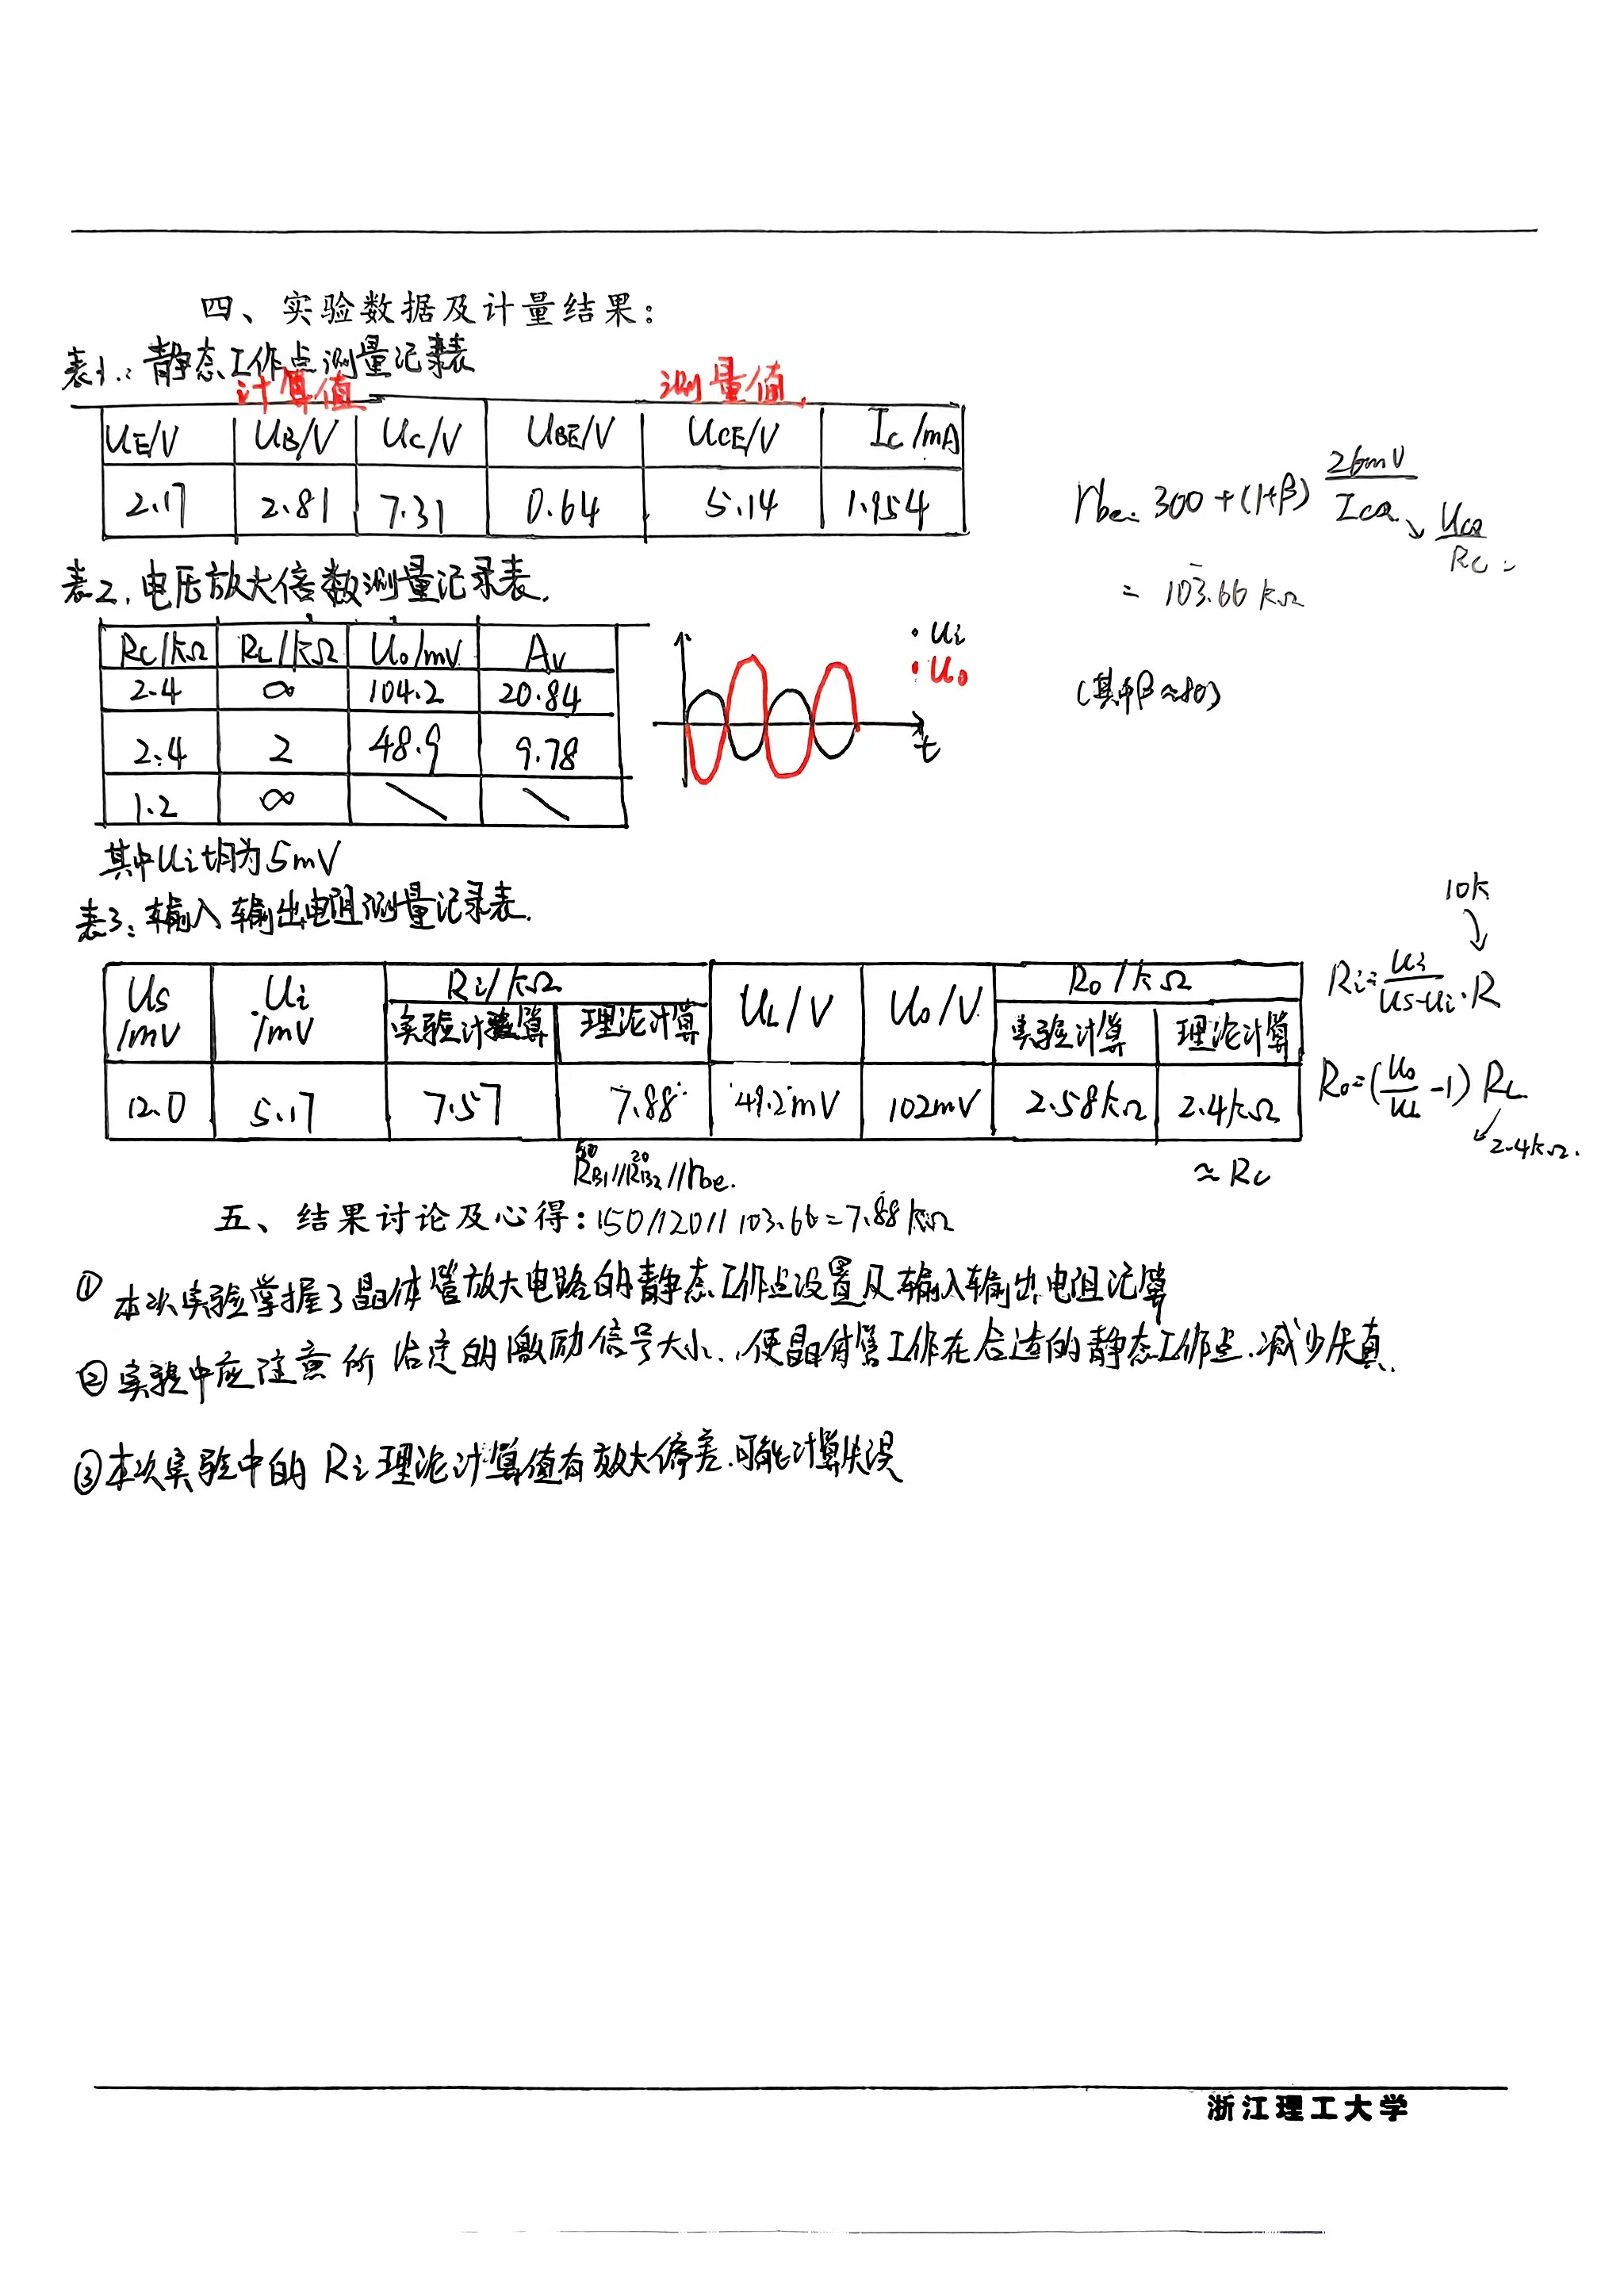 四、实验数据及计量结果：
表1.：静态工作点测量记录表
计算值 测量值
UE/V UB/V UC/V UBE/V UCE/V Ic/mA
2.17 2.81 7.31 0.64 5.14 1.954
rbe= 300+(1+β) 26mV/ICQ → UCQ/RC
= 103.66 kΩ
(其中β≈80)
表2.电压放大倍数测量记录表.
RC/kΩ RL/kΩ Uo/mV Av
2.4 ∞ 104.2 20.84
2.4 2 48.9 9.78
1.2 ∞ \ \
·ui
·uo
t
其中Ui均为5mV
表3：输入输出电阻测量记录表.
Us/mV Ui/mV Ri/kΩ UL/V Uo/V Ro/kΩ
实验计算 理论计算 实验计算 理论计算
12.0 5.17 7.57 7.88 49.2mV 102mV 2.58kΩ 2.4kΩ
10k
Ri=Ui/(Us-Ui)·R
Ro=(Uo/UL-1)RL
2.4kΩ.
20
RB1//RB2//rbe.
≈Rc
五、结果讨论及心得：150//20//103.66=7.88kΩ
①本次实验掌握了晶体管放大电路的静态工作点设置及输入输出电阻记算
②实验中应注意所给定的激励信号大小.,使晶体管工作在合适的静态工作点.减少失真.
③本次实验中的Ri理论计算值有放大偏差.可能计算失误
浙江理工大学